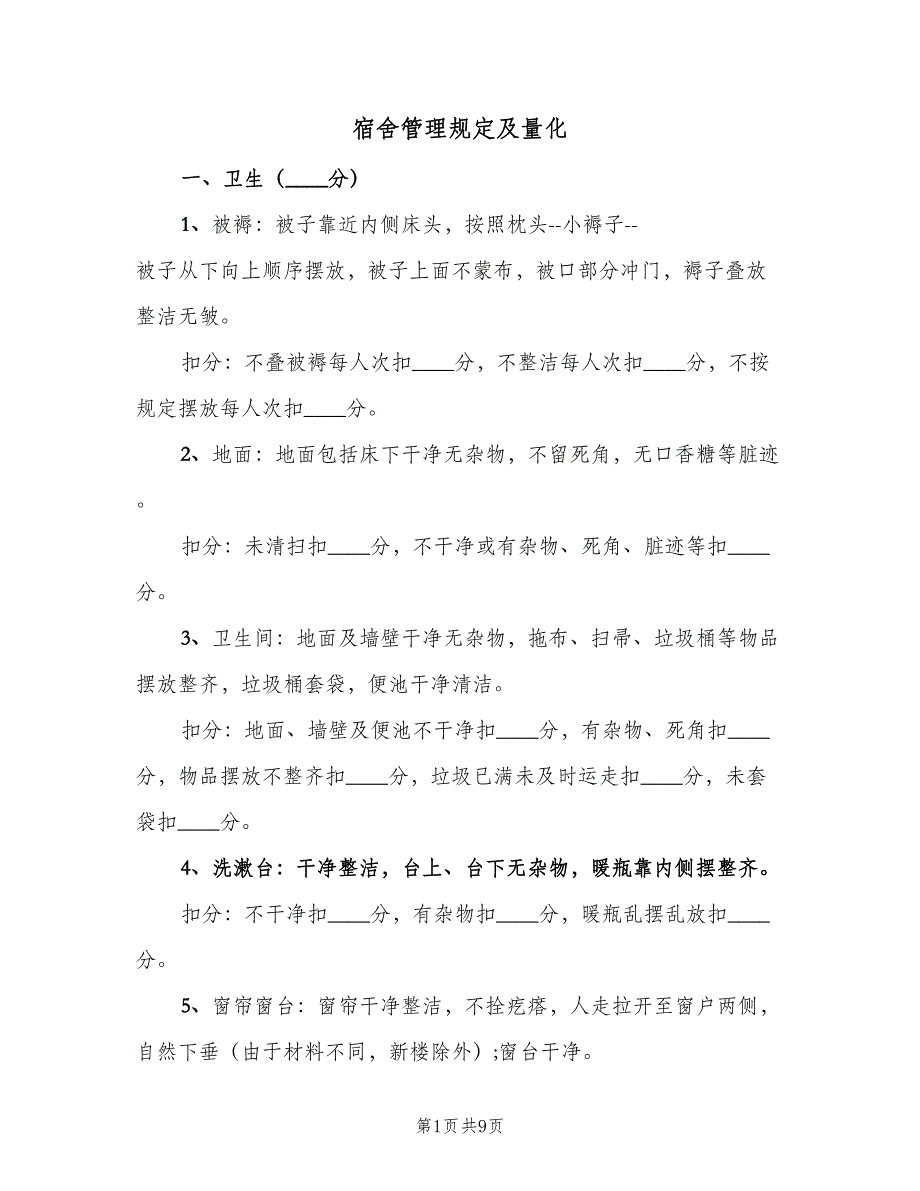 宿舍管理规定及量化
一、卫生（____分）
1、被褥：被子靠近内侧床头，按照枕头--小褥子--
被子从下向上顺序摆放，被子上面不蒙布，被口部分冲门，褥子叠放
整洁无皱。
扣分：不叠被褥每人次扣____分，不整洁每人次扣____分，不按
规定摆放每人次扣____分。
2、地面：地面包括床下干净无杂物，不留死角，无口香糖等脏迹
。
扣分：未清扫扣____分，不干净或有杂物、死角、脏迹等扣____
分。
3、卫生间：地面及墙壁干净无杂物，拖布、扫帚、垃圾桶等物品
摆放整齐，垃圾桶套袋，便池干净清洁。
扣分：地面、墙壁及便池不干净扣____分，有杂物、死角扣____
分，物品摆放不整齐扣____分，垃圾已满未及时运走扣____分，未套
袋扣____分。
4、洗漱台：干净整洁，台上、台下无杂物，暖瓶靠内侧摆整齐。
扣分：不干净扣____分，有杂物扣____分，暖瓶乱摆乱放扣____
分。
5、窗帘窗台：窗帘干净整洁，不拴疙瘩，人走拉开至窗户两侧，
自然下垂（由于材料不同，新楼除外）;窗台干净。
第1页共9页